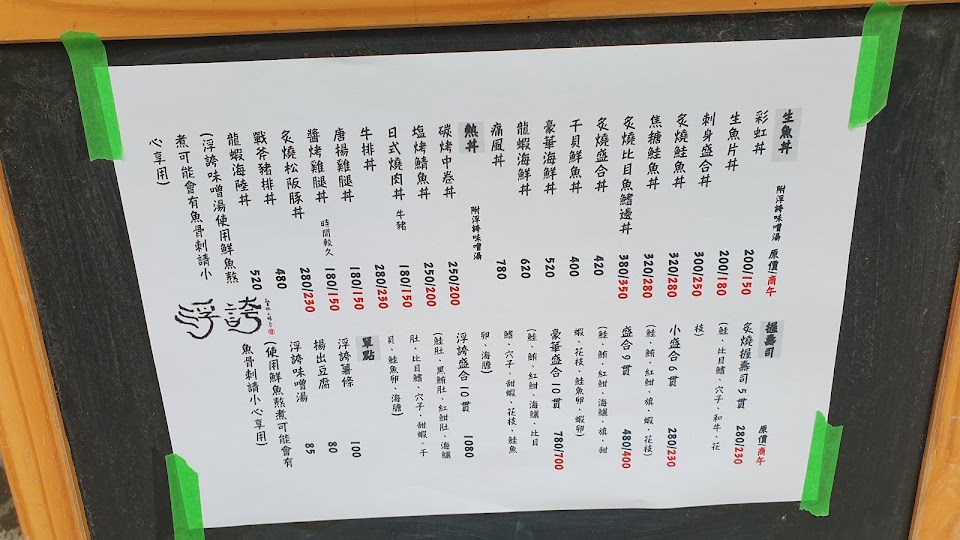 生魚丼 附浮誇味噌湯 原價/商午
彩虹丼 200/150
生魚片丼 200/180
刺身盛合丼 300/250
炙燒鮭魚丼 320/280
焦糖鮭魚丼 320/280
炙燒比目魚鰭邊丼 380/350
炙燒盛合丼 420
干貝鮮魚丼 400
豪華海鮮丼 520
龍蝦海鮮丼 620
痛風丼 780
熟丼 附浮誇味噌湯
碳烤中卷丼 250/200
塩烤鯖魚丼 250/200
日式燒肉丼 牛豬 180/150
牛排丼 280/230
唐揚雞腿丼 時間較久 180/150
醬烤雞腿丼 180/150
炙燒松阪豚丼 280/230
戰斧豬排丼 480
龍蝦海陸丼 520
(浮誇味噌湯使用鮮魚熬
煮可能會有魚骨刺請小
心享用)
握壽司 原價/商午
炙燒握壽司5貫 280/230
(鮭、比目鰭、穴子、和牛、花
枝)
小盛合6貫 280/230
(鮭、鮪、紅魽、旗、蝦、花枝)
盛合9貫 480/400
(鮭、鮪、紅魽、海鱺、旗、甜
蝦、花枝、鮭魚卵、蝦卵)
豪華盛合10貫 780/700
(鮭、鮪、紅魽、海鱺、比目
鰭、穴子、甜蝦、花枝、鮭魚
卵、海膽)
浮誇盛合10貫 1080
(鮭肚、黑鮪肚、紅魽肚、海鱺
肚、比目鰭、穴子、甜蝦、干
貝、鮭魚卵、海膽)
單點
浮誇薯條 100
揚出豆腐 80
浮誇味噌湯 85
(使用鮮魚熬煮可能會有
魚骨刺請小心享用)
浮誇